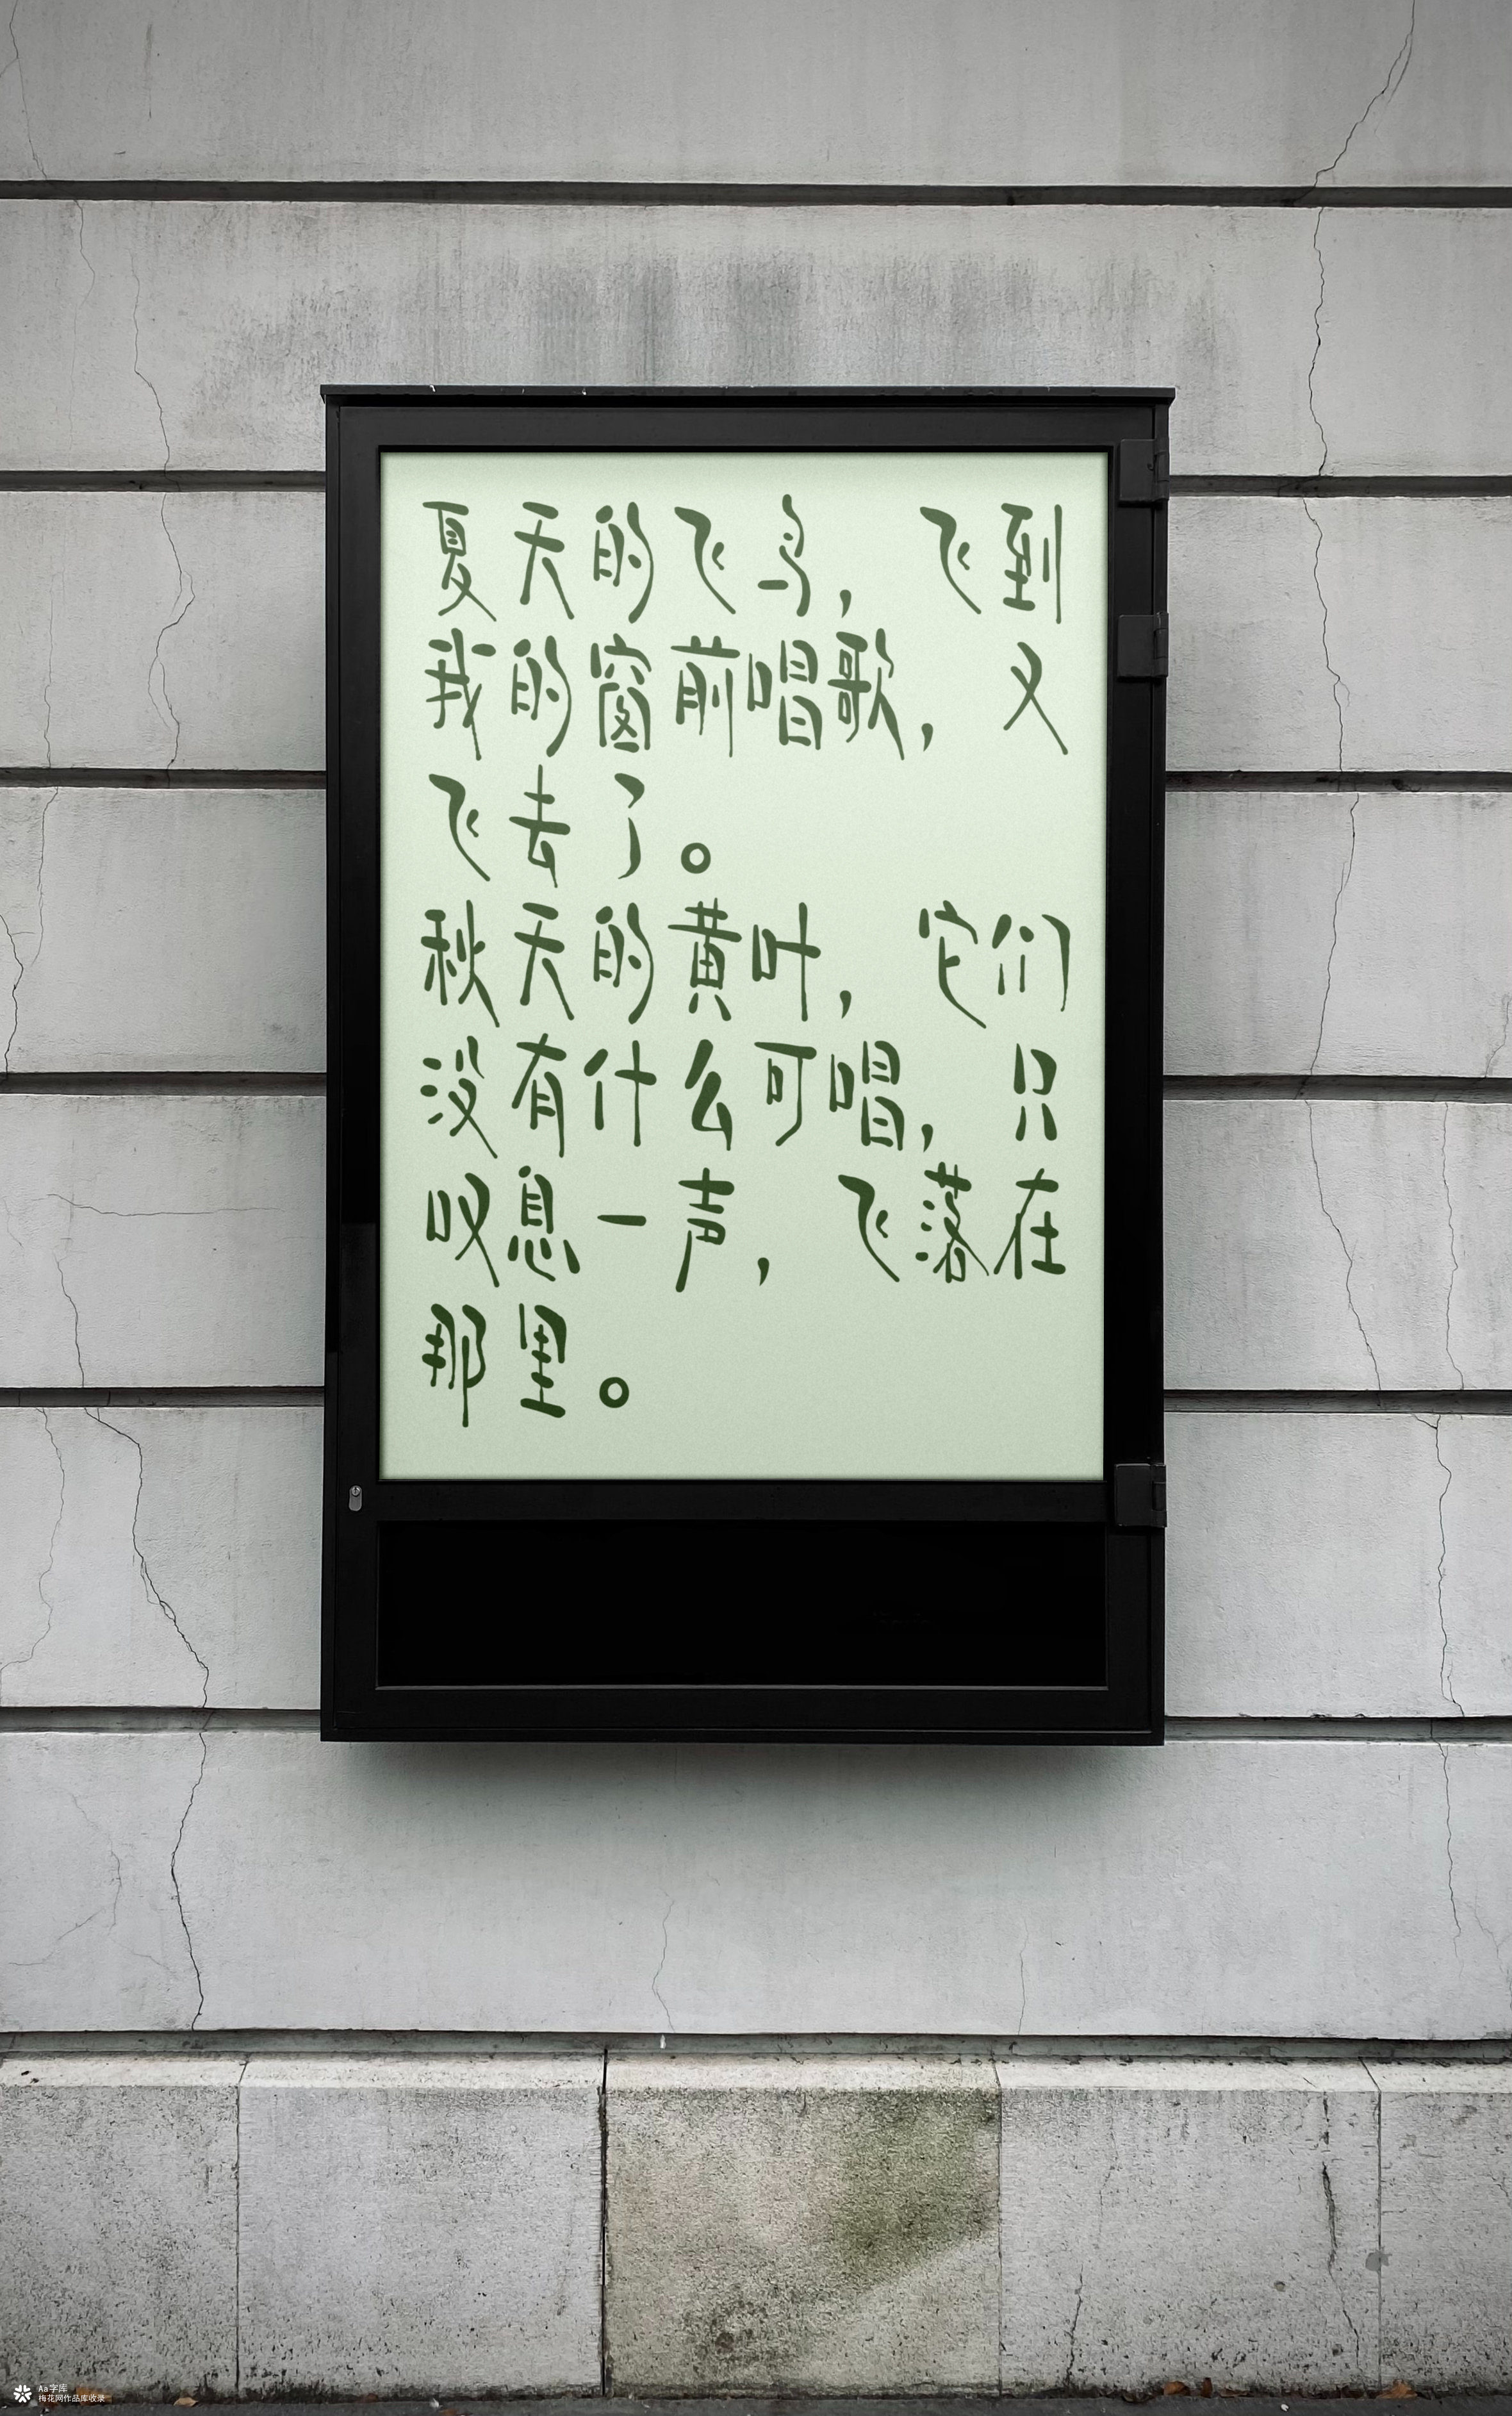 夏天的飞鸟，飞到
我的窗前唱歌，又
飞去了。
秋天的黄叶，它们
没有什么可唱，只
叹息一声，飞落在
那里。
Aa字库
梅花网作品库收录